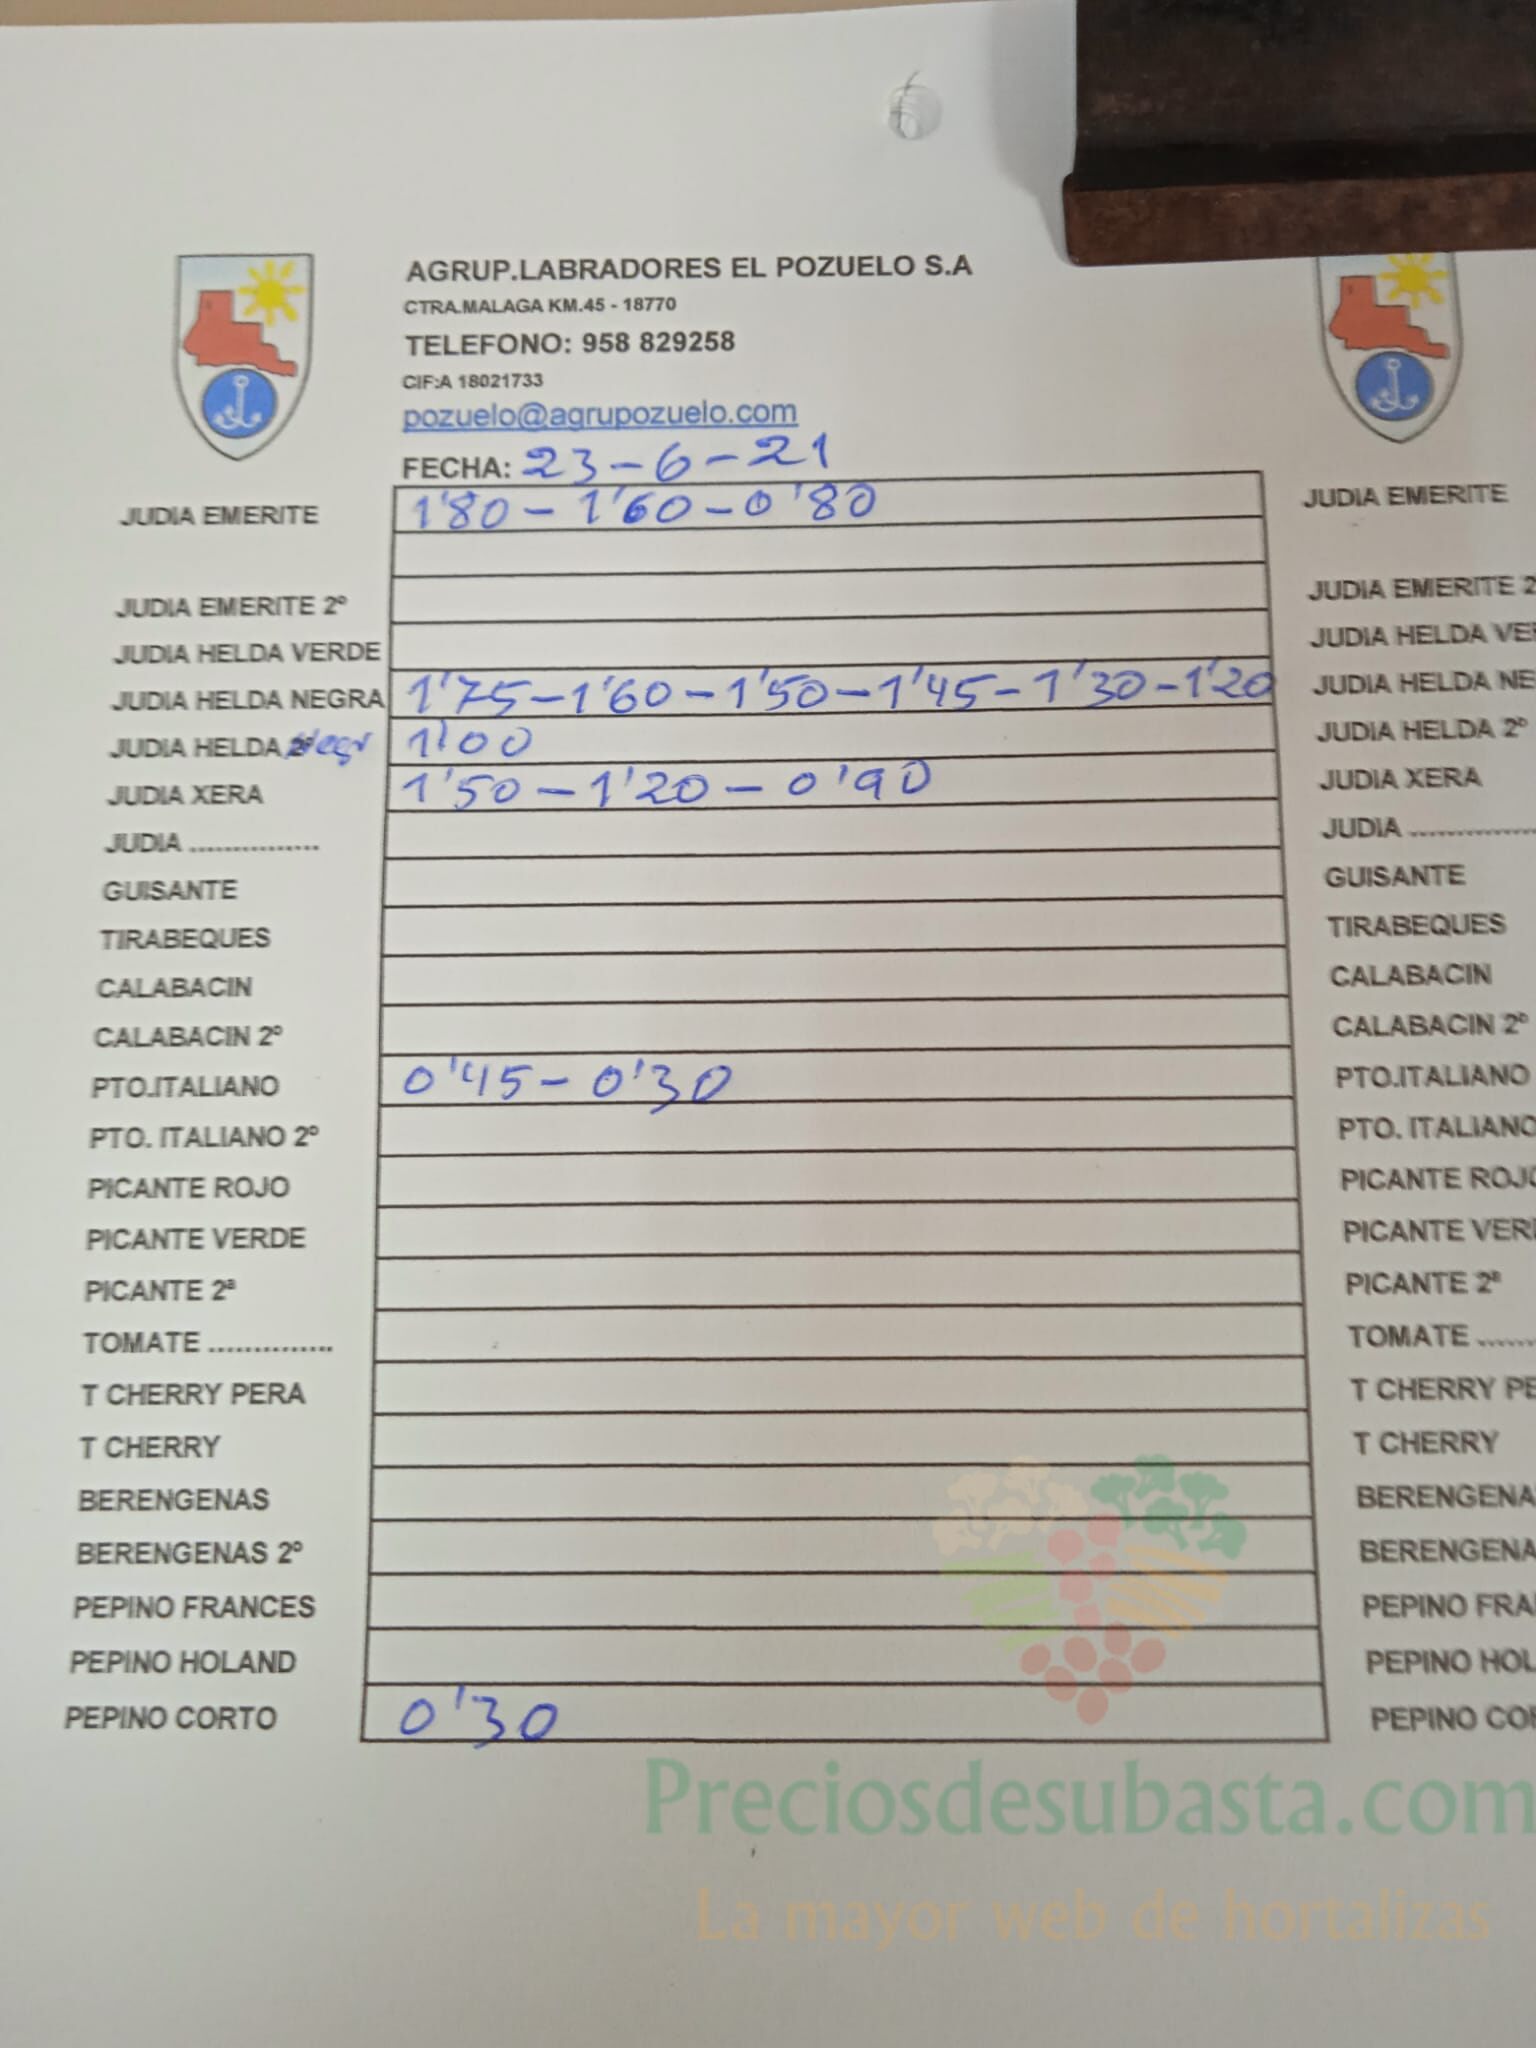 AGRUP.LABRADORES EL POZUELO S.A
CTRA.MALAGA KM.45 - 18770
TELEFONO: 958 829258
CIF:A 18021733
pozuelo@agrupozuelo.com
FECHA: 23-6-21
JUDIA EMERITE 1'80 - 1'60 - 0'80
JUDIA EMERITE 2º
JUDIA HELDA VERDE
JUDIA HELDA NEGRA 1'75 - 1'60 - 1'50 - 1'45 - 1'30 - 1'20
JUDIA HELDA 1'00
JUDIA XERA 1'50 - 1'20 - 0'90
JUDIA ...............
GUISANTE
TIRABEQUES
CALABACIN
CALABACIN 2º
PTO.ITALIANO 0'45 - 0'30
PTO. ITALIANO 2º
PICANTE ROJO
PICANTE VERDE
PICANTE 2ª
TOMATE ..............
T CHERRY PERA
T CHERRY
BERENGENAS
BERENGENAS 2º
PEPINO FRANCES
PEPINO HOLAND
PEPINO CORTO 0'30
JUDIA EMERITE
JUDIA EMERITE 2
JUDIA HELDA VER
JUDIA HELDA NE
JUDIA HELDA 2º
JUDIA XERA
JUDIA ...............
GUISANTE
TIRABEQUES
CALABACIN
CALABACIN 2º
PTO.ITALIANO
PTO. ITALIANO
PICANTE ROJO
PICANTE VER
PICANTE 2ª
TOMATE .......
T CHERRY PE
T CHERRY
BERENGENA
BERENGENA
PEPINO FRA
PEPINO HOL
PEPINO CO
Preciosdesubasta.com
La mayor web de hortalizas